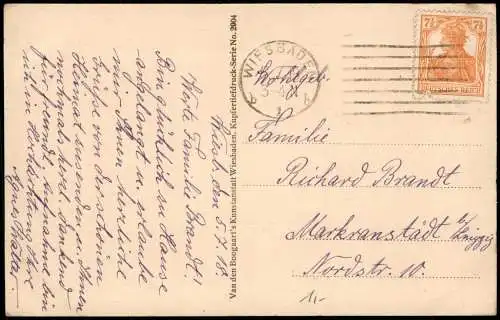 Wiesb. den 5.7.18.
Werte Familie Brandt!
Bin glücklich zu Hause
angelangt u. erlaube
mir Ihnen herzliche
Grüsse von der schönen
Heimat zusenden zu Ihnen
nochmals herzl. dankend
für freundl. Aufnahme bin
ich in Hochachtung Ihre
Agnes
Van den Boogaart's Kunstanstalt Wiesbaden. Kupfertiefdruck-Serie No. 2904
WIESBADEN
7½ 7½
DEUTSCHES REICH
Wohlgeb.
Familie
Richard Brandt
Markranstädt b/ Leipzig
Nordstr. 10.
1,-